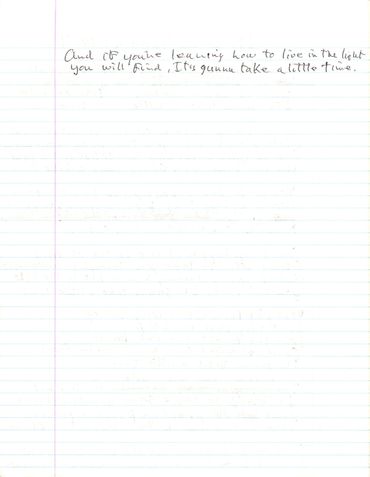 And if you're learning how to live in the light
you will find, It's gunna take a little time.